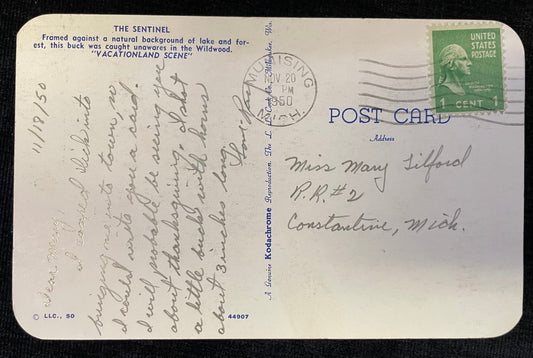 THE SENTINEL
Framed against a natural background of lake and for-
est, this buck was caught unawares in the Wildwood.
"VACATIONLAND SCENE"
11/19/50
Dear Mary;
I roped Dick into
bringing me into town, so
I could write you a card.
I will probably be seeing you
about thanksgiving. I shot
a little buck with horns
about 3 inches long.
Love Ray
© LLC., 50
44907
A Genuine Kodachrome Reproduction. The L. L. Cook Co., Milwaukee, Wis.
MUNISING
NOV 20
PM
1950
MICH.
UNITED
STATES
POSTAGE
1 CENT 1
POST CARD
Address
Miss Mary Tilford
R.R. #2
Constantine, Mich.